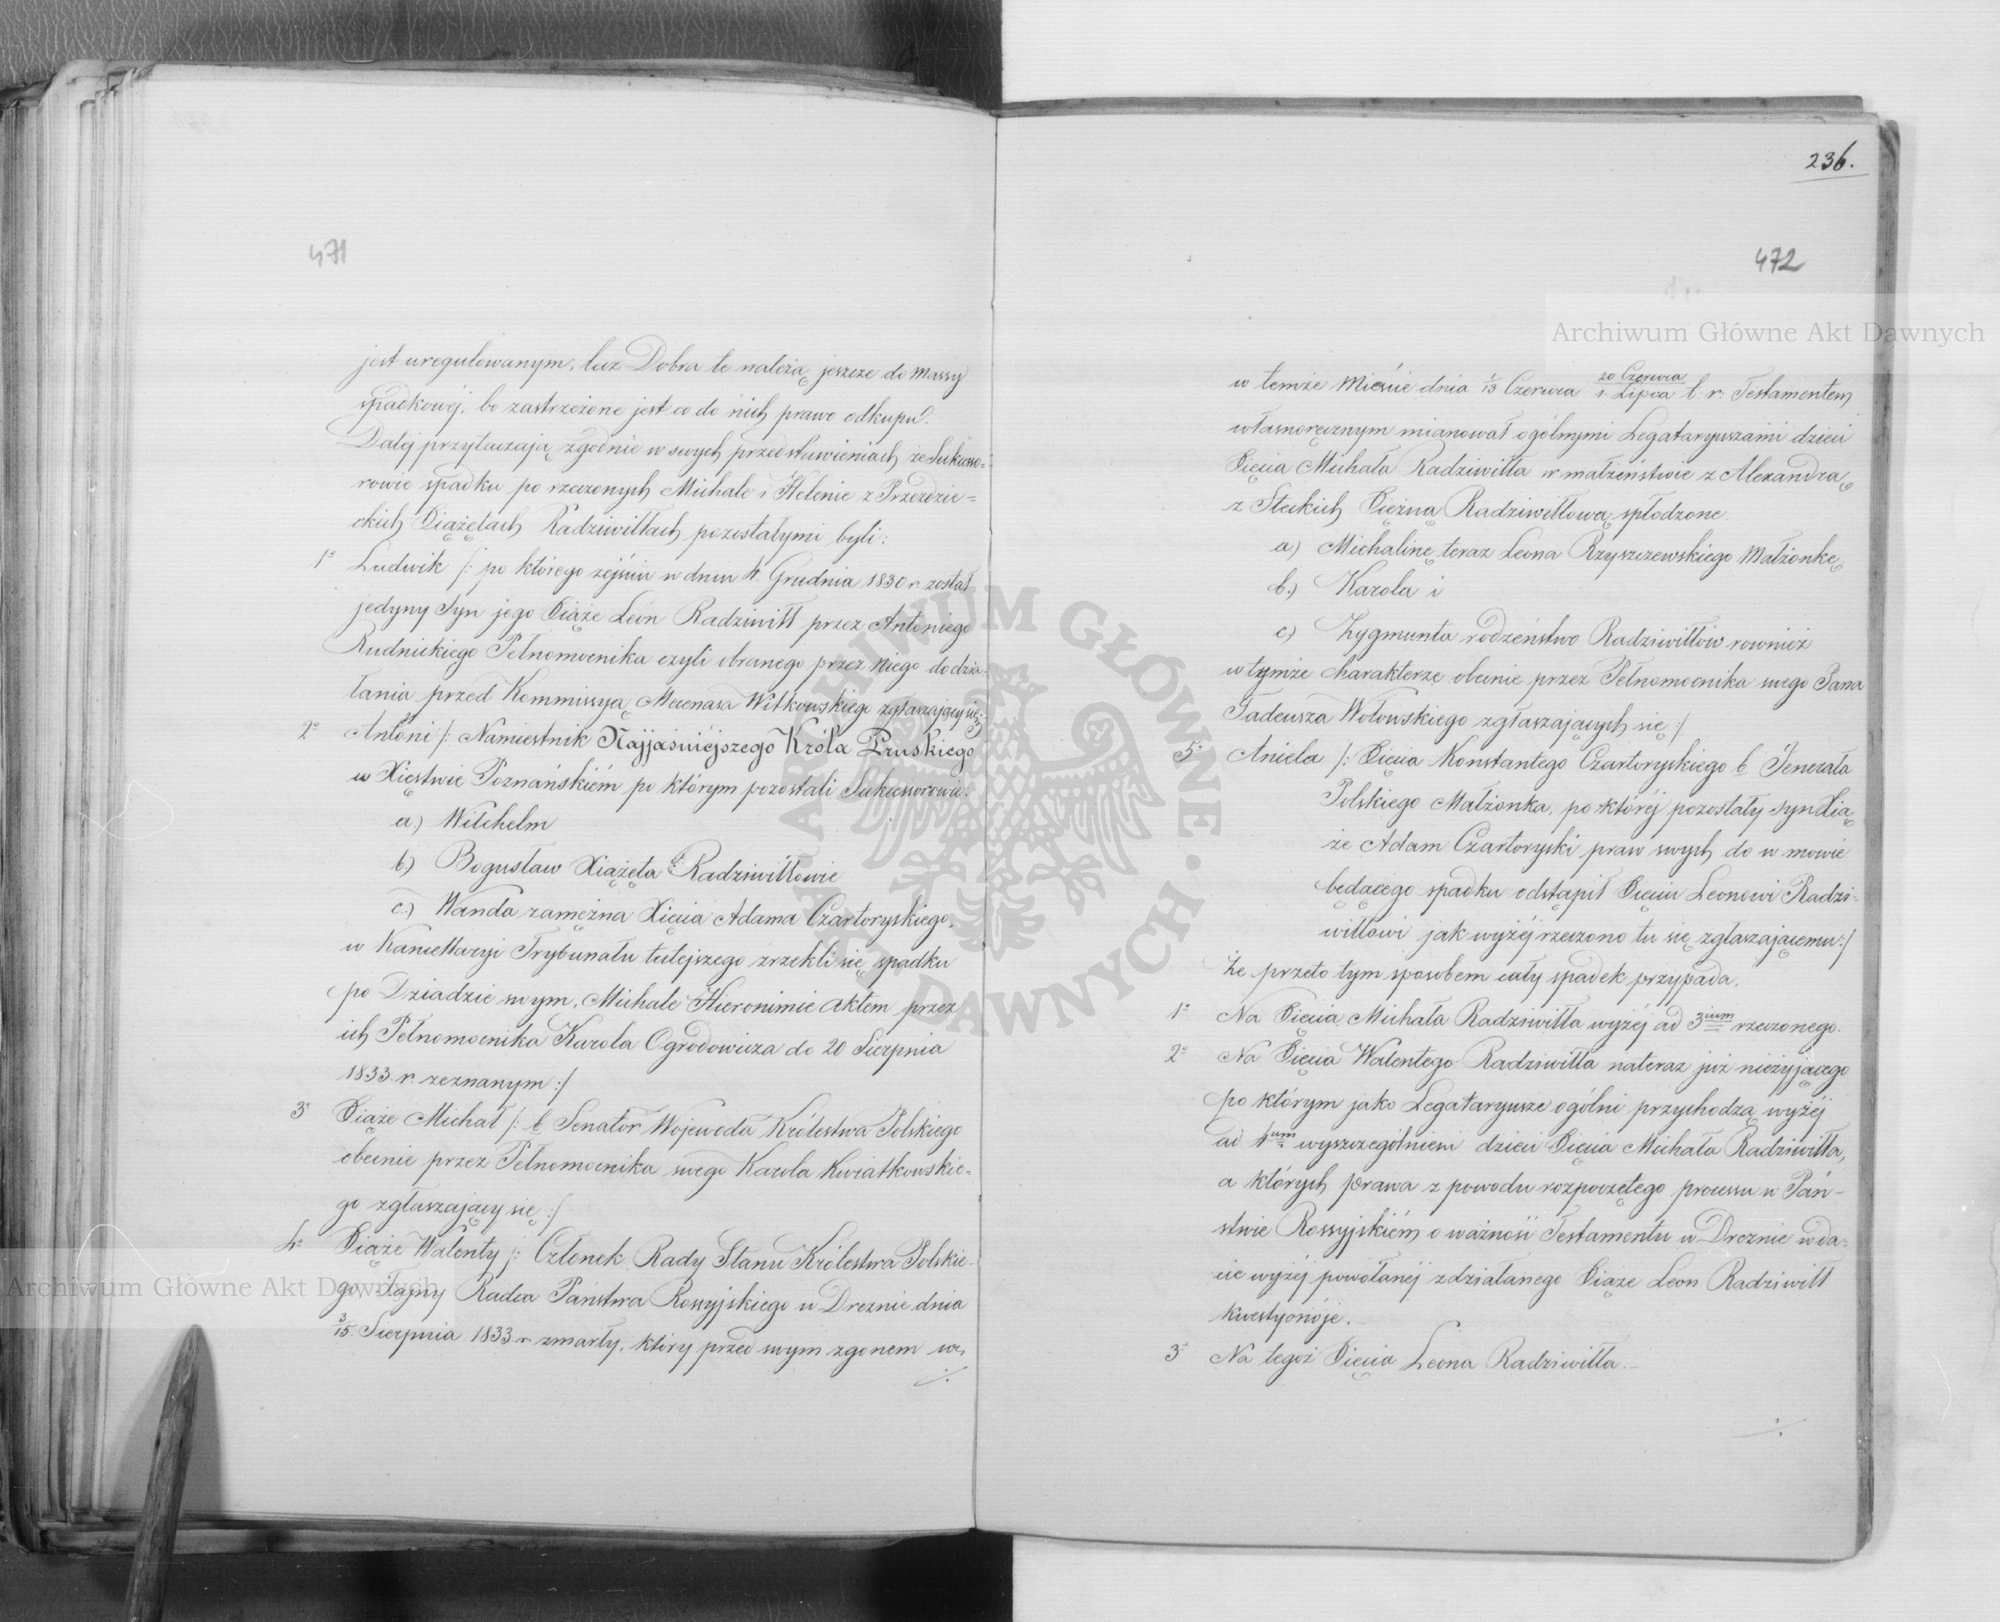 471
jest uregulowanym, lecz Dobra te należą jeszcze do massy
spadkowéj, bo zastrzeżone jest co do nich prawo odkupu.
Daléj przytaczają zgodnie w swych przedstawieniach że Sukcesso=
rowie spadku po rzeczonych Michale i Helenie z Przezdzie=
ckich Xiążętach Radziwiłłach pozostałymi byli:
1o Ludwik /: po którego zejściu w dniu 4. Grudnia 1830 r. został
jedyny Syn jego Xiąże Leon Radziwiłł przez Antoniego
Rudnickiego Pełnomocnika czyli obranego przez niego do dzia=
łania przed Kommissyą Mecenasa Witkowskiego zgłaszający się :/
2o Antoni /: Namiestnik Najjaśniejszego Króla Pruskiego
w Xięstwie Poznańskiém po którym pozostali Sukcessorowie:
a) Wilchelm
b) Bogusław Xiążęta Radziwiłłowie
c.) Wanda zamężna Xięcia Adama Czartoryskiego,
w Kancellaryi Trybunału tutejszego zrzekli się spadku
po Dziadzie swym, Michale Hieronimie aktem przez
ich Pełnomocnika Karola Ogrodowicza do 20 Sierpnia
1833 r. zeznanym :/
3o Xiąże Michał /: b. Senator Wojewoda Królestwa Polskiego
obecnie przez Pełnomocnika swego Karola Kwiatkowskie=
go zgłaszający się :/
4o Xiąże Walenty /: Członek Rady Stanu Królestwa Polskie=
go, Tajny Radca Państwa Rossyjskiego w Dreznie dnia
3/15 Sierpnia 1833 r. zmarły, który przed swym zgonem
./.
236.
472
w temże Mieście dnia 1/13 Czerwca 20 Czerwca/ Lipca t. r. Testamentem
własnoręcznym mianował ogólnymi Legataryuszami dzieci
Xięcia Michała Radziwiłła w małżeństwie z Alexandrą
z Steckich Xiężną Radziwiłłową spłodzone.
a) Michalinę teraz Leona Rzyszczewskiego Małżonkę
b.) Karola i
c) Zygmunta rodzeństwo Radziwiłłów rownież
w tymże charakterze obecnie przez Pełnomocnika swego Pana
Tadeusza Wołowskiego zgłaszających się :/
5o Aniela /: Xięcia Konstantego Czartoryskiego b. Jenerała
Polskiego Małżonka, po któréj pozostały syn Xią
że Adam Czartoryski praw swych do w mowie
będącego spadku odstąpił Xięciu Leonowi Radzi=
wiłłowi jak wyżéj rzeczono tu się zgłaszającemu :/
Że przeto tym sposobem cały spadek przypada.
1o Na Xięcia Michała Radziwiłła wyżéj ad 3ium rzeczonego.
2o Na Xięcia Walentego Radziwiłła nateraz już nieżyjącego
po którym jako Legataryusze ogólni przychodzą wyżéj
ad 4um wyszczególnieni dzieci Xięcia Michała Radziwiłła,
a których prawa z powodu rozpoczętego processu w Pań=
stwie Rossyjskiém o ważność Testamentu w Dreznie w da=
cie wyżéj powołanéj zdziałanego Xiąże Leon Radziwiłł
kwestyonuje.
3o Na tegoż Xięcia Leona Radziwiłła.
./.
Archiwum Główne Akt Dawnych
Archiwum Główne Akt Dawnych
ARCHIWUM GŁÓWNE AKT DAWNYCH